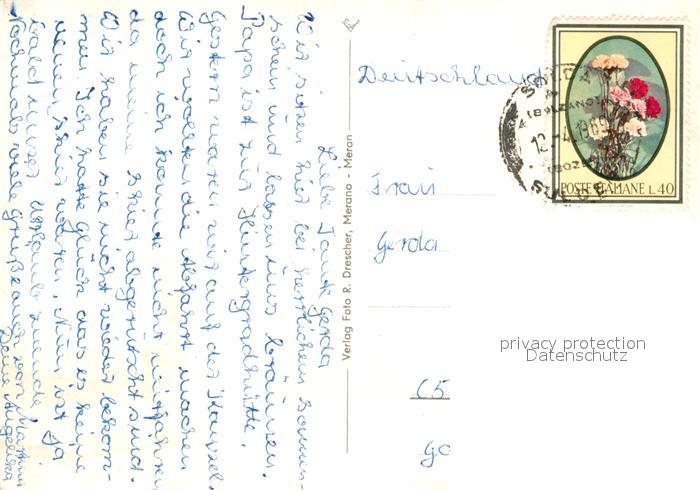 Liebe Tante Gerda
Wir sitzen hier bei herrlichem Sonnen-
schein und lassen uns bräunen.
Papa ist zur Hintergradhütte.
Gestern waren wir auf der Kanzel.
Wir wollten die Abfahrt machen
doch ich konnte nicht mitfahren
da meine Skier abgerutscht sind.
Wir haben sie nicht wieder bekom-
men. Ich hatte Glück das es keine
neuen Skier waren. Nun ist ja
bald unser Urlaub zuende.
Nochmals viele Grüße auch von Martin
Deine Angelika
Verlag Foto R. Drescher, Merano - Meran
Deutschland
Frau
Gerda
(5
Go
POSTE ITALIANE L. 40
(BOLZANO)
12.-4.196
(BOZEN)
privacy protection
Datenschutz